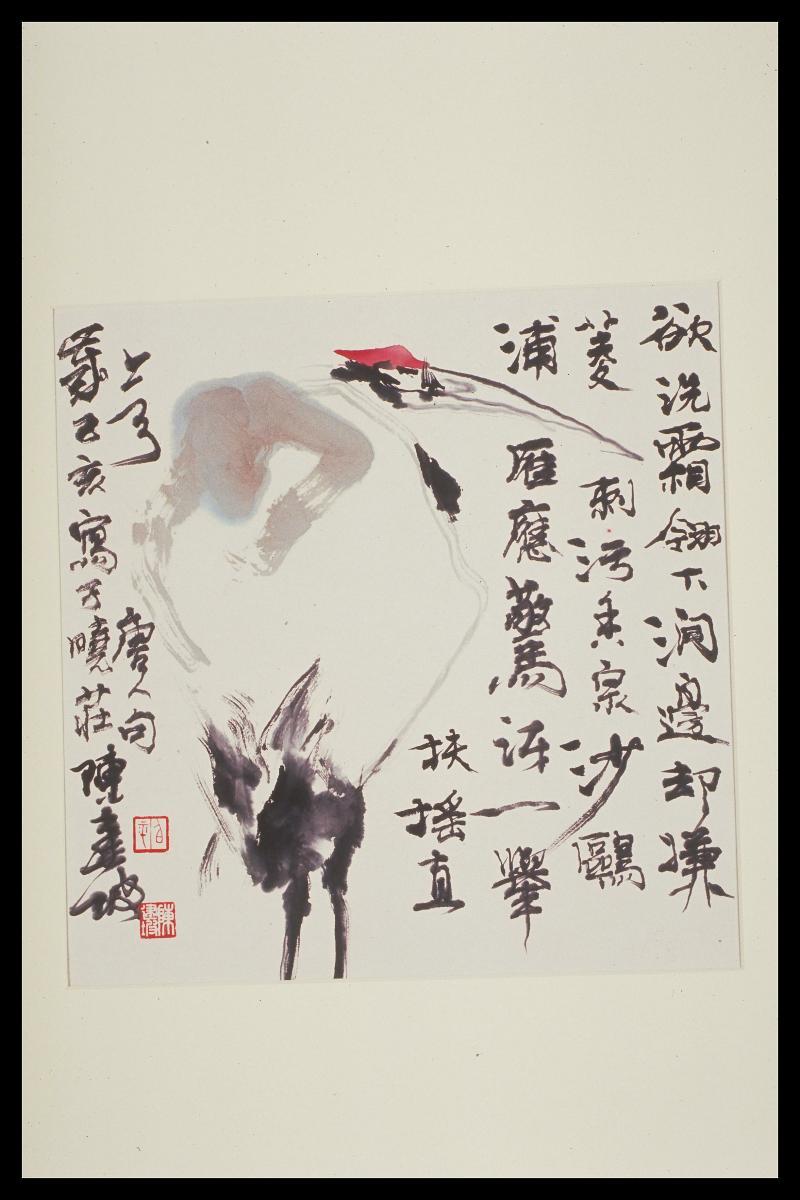 欲洗霜翎下澗邊却嫌
菱刺污香泉沙鷗
浦雁應驚訝一舉
扶搖直
上天唐人句
歲己亥寫于曉莊陳